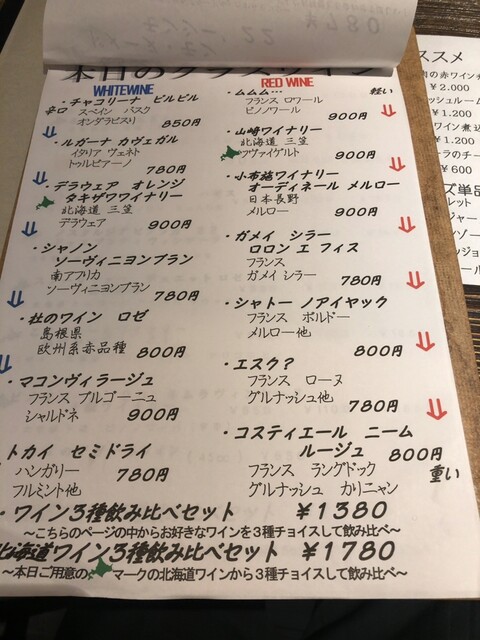 本日のグラスワイン
WHITEWINE
・チャコリーナ ピルピル
辛口 スペイン バスク
オンダラビスリ 850円
・ルガーナ カヴェガル
イタリア ヴェネト
トゥルビアーノ 780円
・デラウェア オレンジ
タキザワワイナリー
北海道 三笠
デラウェア 900円
・シャノン
ソーヴィニヨンブラン
南アフリカ
ソーヴィニヨンブラン 780円
・杜のワイン ロゼ
島根県
欧州系赤品種 800円
・マコンヴィラージュ
フランス ブルゴーニュ
シャルドネ 900円
トカイ セミドライ
ハンガリー 780円
フルミント他
RED WINE
・ムムム… 軽い
フランス ロワール
ピノノワール 900円
・山崎ワイナリー
北海道 三笠
ツヴァイゲルト 900円
・小布施ワイナリー
オーディネール メルロー
日本長野
メルロー 900円
・ガメイ シラー
ロロン エ フィス
フランス
ガメイ シラー 780円
・シャトー ノアイヤック
フランス ボルドー
メルロー他 800円
・エスク?
フランス ローヌ
グルナッシュ他 780円
・コスティエール ニーム
ルージュ 800円
フランス ラングドック 重い
グルナッシュ カリニャン
・ワイン3種飲み比べセット ¥1380
~こちらのページの中からお好きなワインを3種チョイスして飲み比べ~
北海道ワイン3種飲み比べセット ¥1780
~本日ご用意の マークの北海道ワインから3種チョイスして飲み比べ~
ススメ
¥2.000
ッシュルーム
¥1.200
ワイン煮込
¥1.200
ラのチー
¥600
ズ単品
レット
ジャー
ンゾー
ンジョ